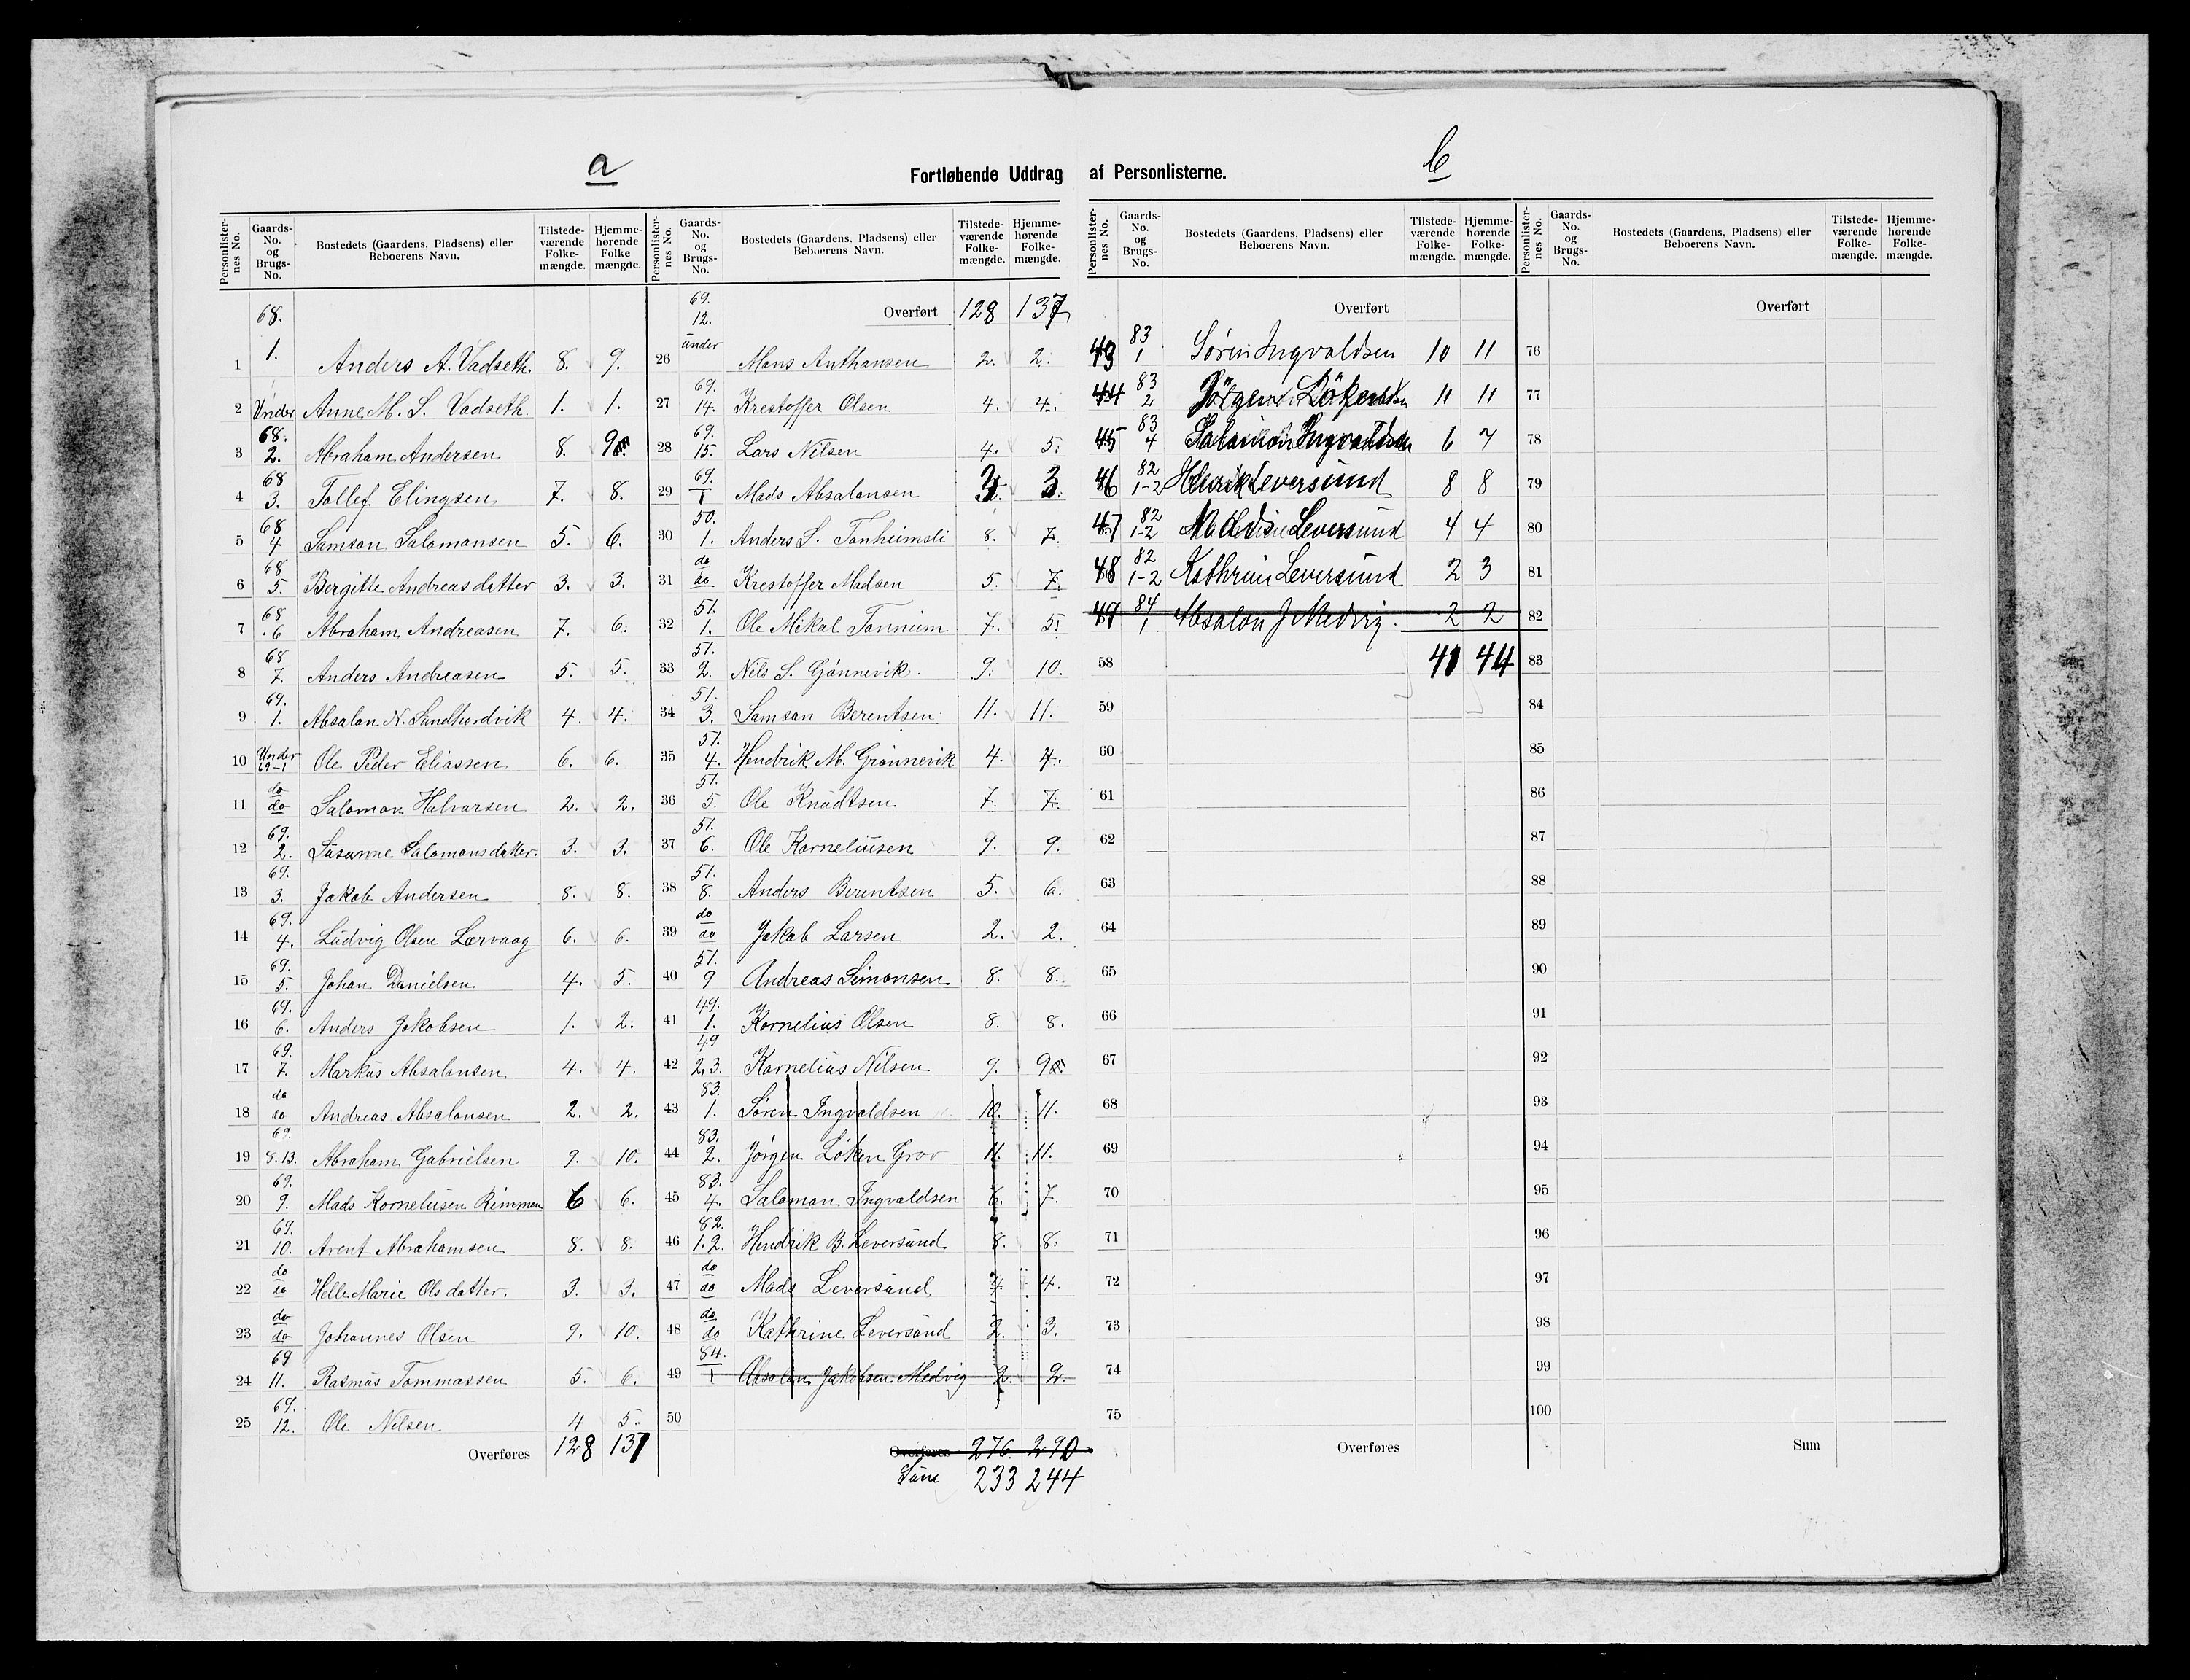 a
b
Fortløbende Uddrag af Personlisterne.
Personlister-nes No. Gaards-No. og Brugs-No. Bostedets (Gaardens, Pladsens) eller Beboerens Navn. Tilstede-værende Folke-mængde. Hjemme-hørende Folke mængde.
68.
1 1. Anders A. Vadseth. 8. 9.
2 Under Anne M. S. Vadseth. 1. 1.
3 68. 2. Abraham Andersen 8. 9
4 68 3. Tollef Elingsen 7. 8.
5 68 4 Samson Salamonsen 5. 6.
6 68 5. Bergitte Andreasdatter 3. 3.
7 68 6 Abraham Andreasen 7. 6.
8 68 7. Anders Andreasen 5. 5.
9 69. 1. Absalon N. Sandhordvik 4. 4.
10 Under 69-1 Ole Peder Eliassen 6. 6.
11 do do Salomon Halvarsen 2. 2.
12 69. 2. Susanne Salomonsdatter. 3. 3.
13 69. 3. Jakob Andersen 8. 8.
14 69. 4. Ludvig Olsen Lervaag 6. 6.
15 69. 5. Johan Danielsen 4. 5.
16 69. 6. Anders Jakobsen 1. 2.
17 69. 7. Markus Absalonsen 4. 4.
18 do do Andreas Absalonsen 2. 2.
19 69. 8.13. Abraham Gabrielsen 9. 10.
20 69. 9. Mads Korneliusen Rimmen 6 6.
21 69. 10. Arent Abrahamsen 8. 8.
22 do do Helle Marie Olsdatter. 3. 3.
23 do do Johannes Olsen 9. 10.
24 69 11. Rasmus Tommassen 5. 6.
25 69. 12. Ole Nilsen 4 5.
Overføres 128 137
Personlister-nes No. Gaards-No. og Brugs-No. Bostedets (Gaardens, Pladsens) eller Beboerens Navn. Tilstede-værende Folke-mængde. Hjemme-hørende Folke-mængde.
Overført 128 137
26 69. 12. under Mons Anthonsen 2. 2.
27 69. 14. Krestoffer Olsen 4. 4.
28 69. 15. Lars Nilsen 4. 5.
29 69. 1 Mads Absalonsen 3 3.
30 50. 1. Anders S. Tonheimsli 8. 7.
31 do do Krestoffer Madsen 5. 7.
32 51. 1. Ole Mikal Tonnum 7. 5.
33 51. 2. Nils S. Gønnevik. 9. 10.
34 51. 3. Samson Berentsen 11. 11.
35 51. 4. Hendrik M. Grønnevik 4. 4.
36 51. 5. Ole Knudtsen 7. 7.
37 51. 6. Ole Korneliusen 9. 9.
38 51. 8. Anders Berentsen 5. 6.
39 do do Jakob Larsen 2. 2.
40 51. 9 Andreas Simonsen 8. 8.
41 49. 1. Kornelius Olsen 8. 8.
42 49 2,3. Kornelius Nilsen 9. 9
43 83. 1. Søren Ingvaldsen 10. 11.
44 83. 2. Jørgen Løken Grov 11. 11.
45 83. 4. Salamon Ingvaldsen 6. 7.
46 82. 1.2. Hendrik B. Leversund 8. 8.
47 do do Mads Leversund 4 4.
48 do do Kathrine Leversund 2. 3.
49 84. 1 Absalon Jakobsen Medvig 2. 2.
50
Overføres 276. 290
Sum 233 244
Personlister-nes No. Gaards-No. og Brugs-No. Bostedets (Gaardens, Pladsens) eller Beboerens Navn. Tilstede-værende Folke-mængde. Hjemme-hørende Folke-mængde.
Overført
43 83 1 Søren Ingvaldsen 10 11
44 83 2 Jörgen Löken 11 11
45 83 4 Salamon Ingvaldsen 6 7
46 82 1-2 Henrik Leversund 8 8
47 82 1-2 Leversund 4 4
48 82 1-2 Kathrin Leversund 2 3
49 84 1 Absalon J Medvig. 2 2
58 41 44
59
60
61
62
63
64
65
66
67
68
69
70
71
72
73
74
75
Overføres
Personlister-nes No. Gaards-No. og Brugs-No. Bostedets (Gaardens, Pladsens) eller Beboerens Navn. Tilstede-værende Folke-mængde. Hjemme-hørende Folke-mængde.
Overført
76
77
78
79
80
81
82
83
84
85
86
87
88
89
90
91
92
93
94
95
96
97
98
99
100
Sum